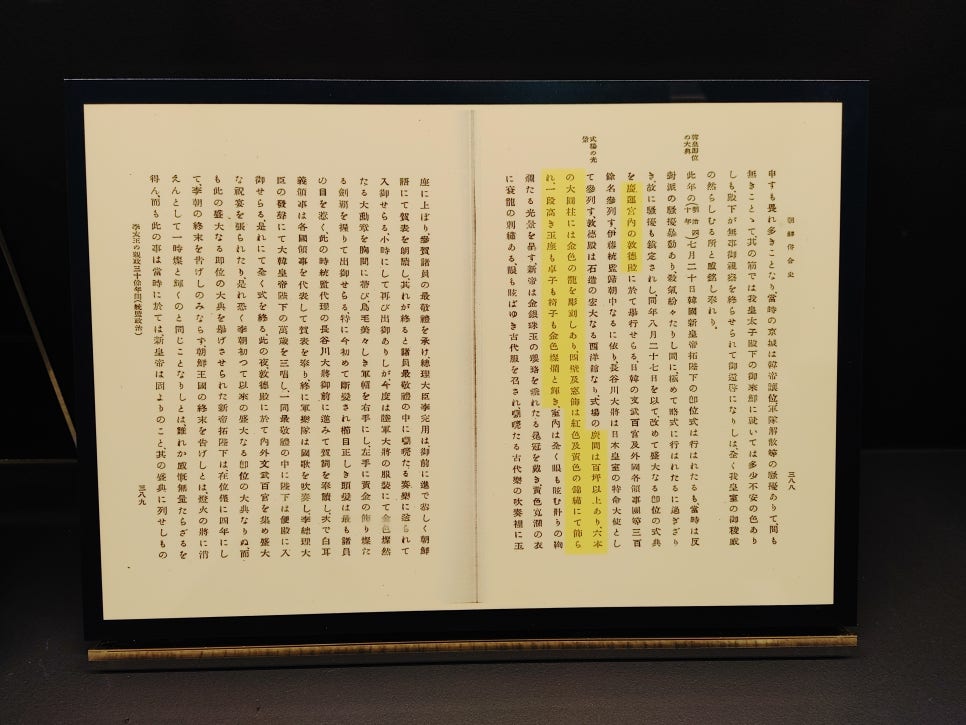 朝鮮併合史
三八八
申すも畏れ多きことなり、當時の京城は韓帝讓位、軍隊解散等の騷擾ありて間も
無きことゝて其の筋では我皇太子殿下の御來鮮に就いては多少不安の色あり
しも、殿下が無事御視察を終らせられて御還啓になりしは、全く我皇室の御稜威
の然らしむる所と感銘し奉れり。
韓皇卽位
の大典
此年の(明治四十年)七月二十日韓國新皇帝拓陛下の卽位式は行はれたるも、當時は反
對派の騷擾暴動あり、殺氣紛々たりし間に、極めて略式に行はれたるに過ぎざり
き、故に騷擾も鎭定されし、同年八月二十七日を以て、改めて盛大なる卽位の式典
を慶運宮內の敦德殿に於て擧行せらる、日韓の文武百官及外國各領事團等三百
餘名參列す、伊藤統監歸朝中なるに依り、長谷川大將は日本皇室の特命大使とし
式場の光
景
て參列す、敦德殿は石造の宏大なる西洋館なり、式場の廣間は百坪以上あり、六本
の大圓柱には金色の龍を彫刻しあり、四壁及窓飾は紅色及黃色の錦繡にて飾ら
れ、一段高き玉座も卓子も椅子も金色燦爛と輝き、室內は全く眼も眩む計りの絢
爛たる光景を呈す、新帝は金銀珠玉の瓔珞を垂れたる冕冠を戴き、黃色寬濶の衣
に袞龍の刺繡ある、眼も眩ばゆき古代服を召され、嚠喨たる古代樂の吹奏裡に玉
座に上ばり、參賀諸員の最敬禮を承け總理大臣李完用は、御前に進で恭しく朝鮮
語にて賀表を朗讀し、其れが終ると諸員最敬禮の中に嚠喨たる奏樂に送られて
入御せらる、小時にして再び出御ありしが今度は陸軍大將の服裝にて金色燦然
たる大勳章を胸間に帶び、鳥毛美々しき軍帽を右手にし、左手に黃金の飾り燦た
る劍覇を握りて出御せらる、特に今初めて斷髮され櫛目正しき頭髮は最も諸員
の目を惹く、此の時統監代理の長谷川大將御前に進みて賀詞を奉讀し、次で白耳
義領事は各國領事を代表して賀表を奉り、終に軍樂隊は國歌を吹奏し、李總理大
臣の發聲にて大韓皇帝陛下の萬歲を三唱し、一同最敬禮の中に陛下は便殿に入
御せらる、是れにて全く式を終る、此の夜、敦德殿に於て內外文武百官を集め盛大
な祝宴を張られたり、是れ恐く李朝初つて以來の盛大なる卽位の大典なりぬ、而
も此の盛大なる卽位の大典を擧げさせられた新帝拓陛下は、在位僅に四年にし
て、李朝の終末を告げしのみならず、朝鮮王國の終末を告げしとは、燈火の將に消
えんとして一時燦と輝くのと同じことなりしとは、誰れか感慨無量たらざるを
得ん、而も此の事は當時に於ては、新皇帝は固よりのこと、其の盛典に列せしもの
李太王の親政三十餘年間(統監政治)
三八九